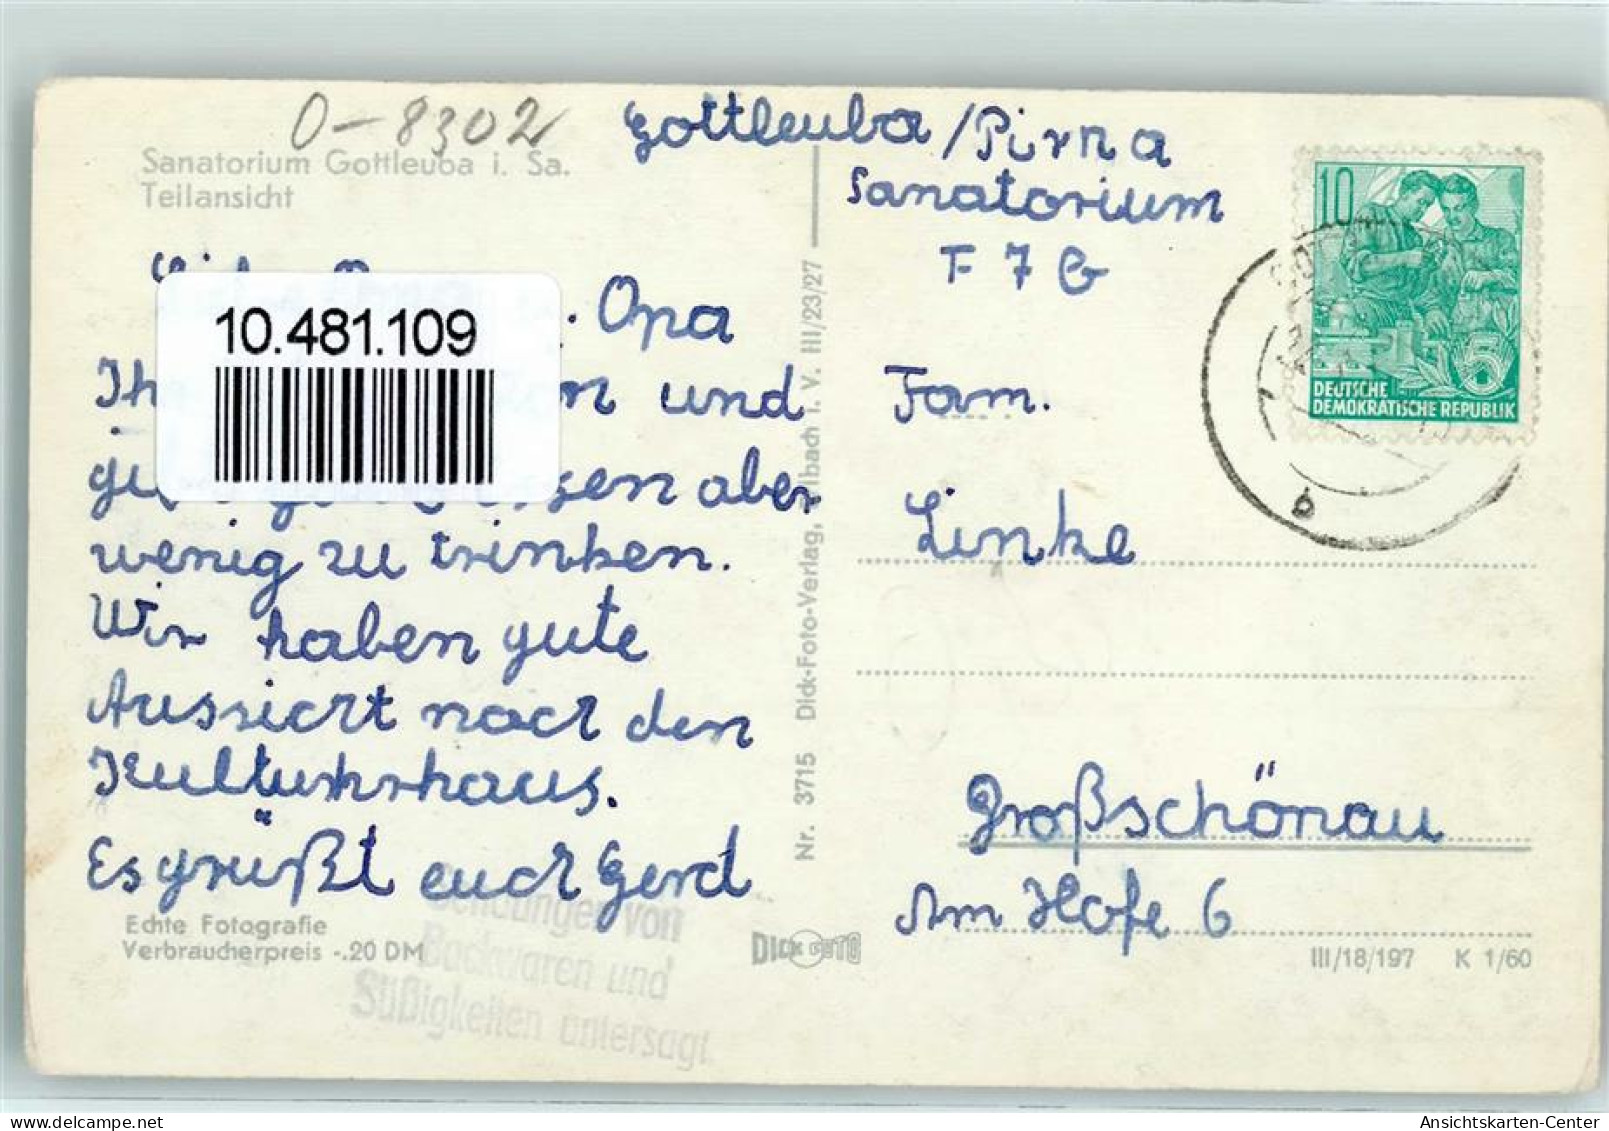 O-8302
Sanatorium Gottleuba i. Sa.
Teilansicht
Opa
10.481.109
und
aber
wenig zu trinken.
Wir haben gute
Aussicht nach den
Kulturhaus.
Es grüßt euch Gerd
Echte Fotografie
Verbraucherpreis -.20 DM
Sendungen von
Backwaren und
Süßigkeiten untersagt
Nr. 3715 Dick-Foto-Verlag, i. V. III/23/27
DICK FOTO
Gottleuba/Pirna
Sanatorium
F 7 G
10
5
DEUTSCHE
DEMOKRATISCHE REPUBLIK
b
Fam.
Linke
Großschönau
Am Hofe 6
III/18/197 K 1/60
Ansichtskarten-Center